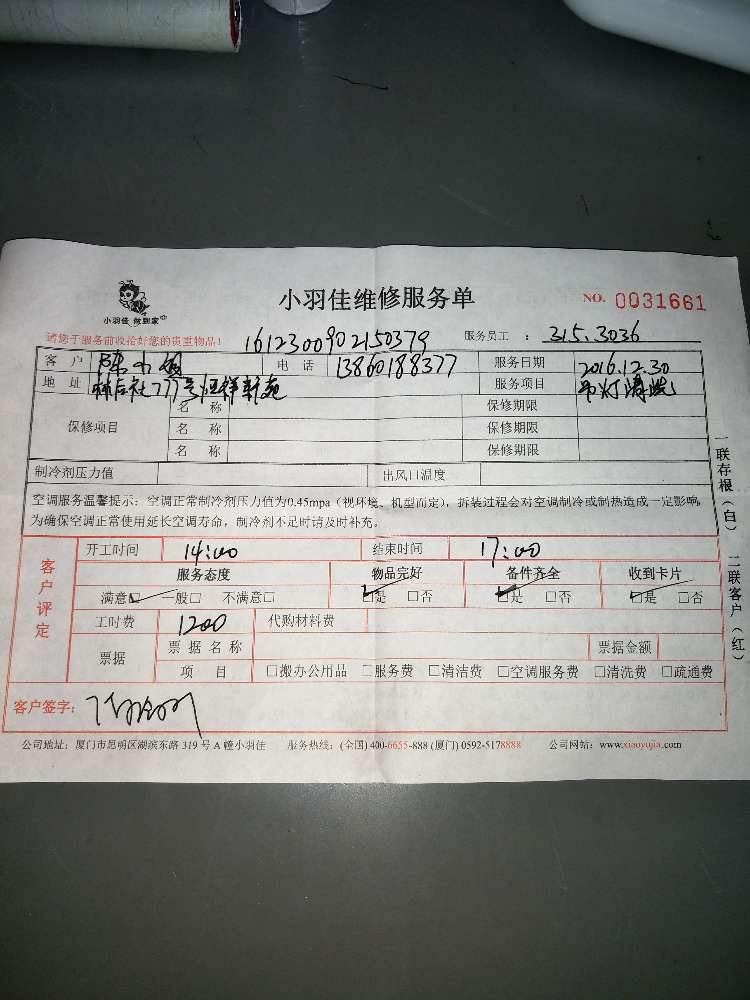 小羽佳 做到家
小羽佳维修服务单
NO. 0031661
请您于服务前收拾好您的贵重物品！
1612300902150379
服务员工： 315.3036
客户 陈小姐 电话 13860188377 服务日期 2016.12.30
地址 林后社777号恒祥新苑 服务项目 吊灯清洗
保修项目 名称 保修期限
名称 保修期限
名称 保修期限
制冷剂压力值 出风口温度
空调服务温馨提示：空调正常制冷剂压力值为0.45mpa（视环境、机型而定），拆装过程会对空调制冷或制热造成一定影响，
为确保空调正常使用延长空调寿命，制冷剂不足时请及时补充。
客户评定
开工时间 14:00 结束时间 17:00
服务态度 物品完好 备件齐全 收到卡片
满意☑ 一般□ 不满意□ ☑是 □否 ☑是 □否 ☑是 □否
工时费 1200 代购材料费
票据 票据名称 票据金额
项目 □搬办公用品 □服务费 □清洁费 □空调服务费 □清洗费 □疏通费
客户签字：
公司地址：厦门市思明区湖滨东路 319 号 A 幢小羽佳 服务热线：(全国) 400-6655-888 (厦门) 0592-5178888 公司网站：www.xiaoyujia.com
一联存根（白） 二联客户（红）